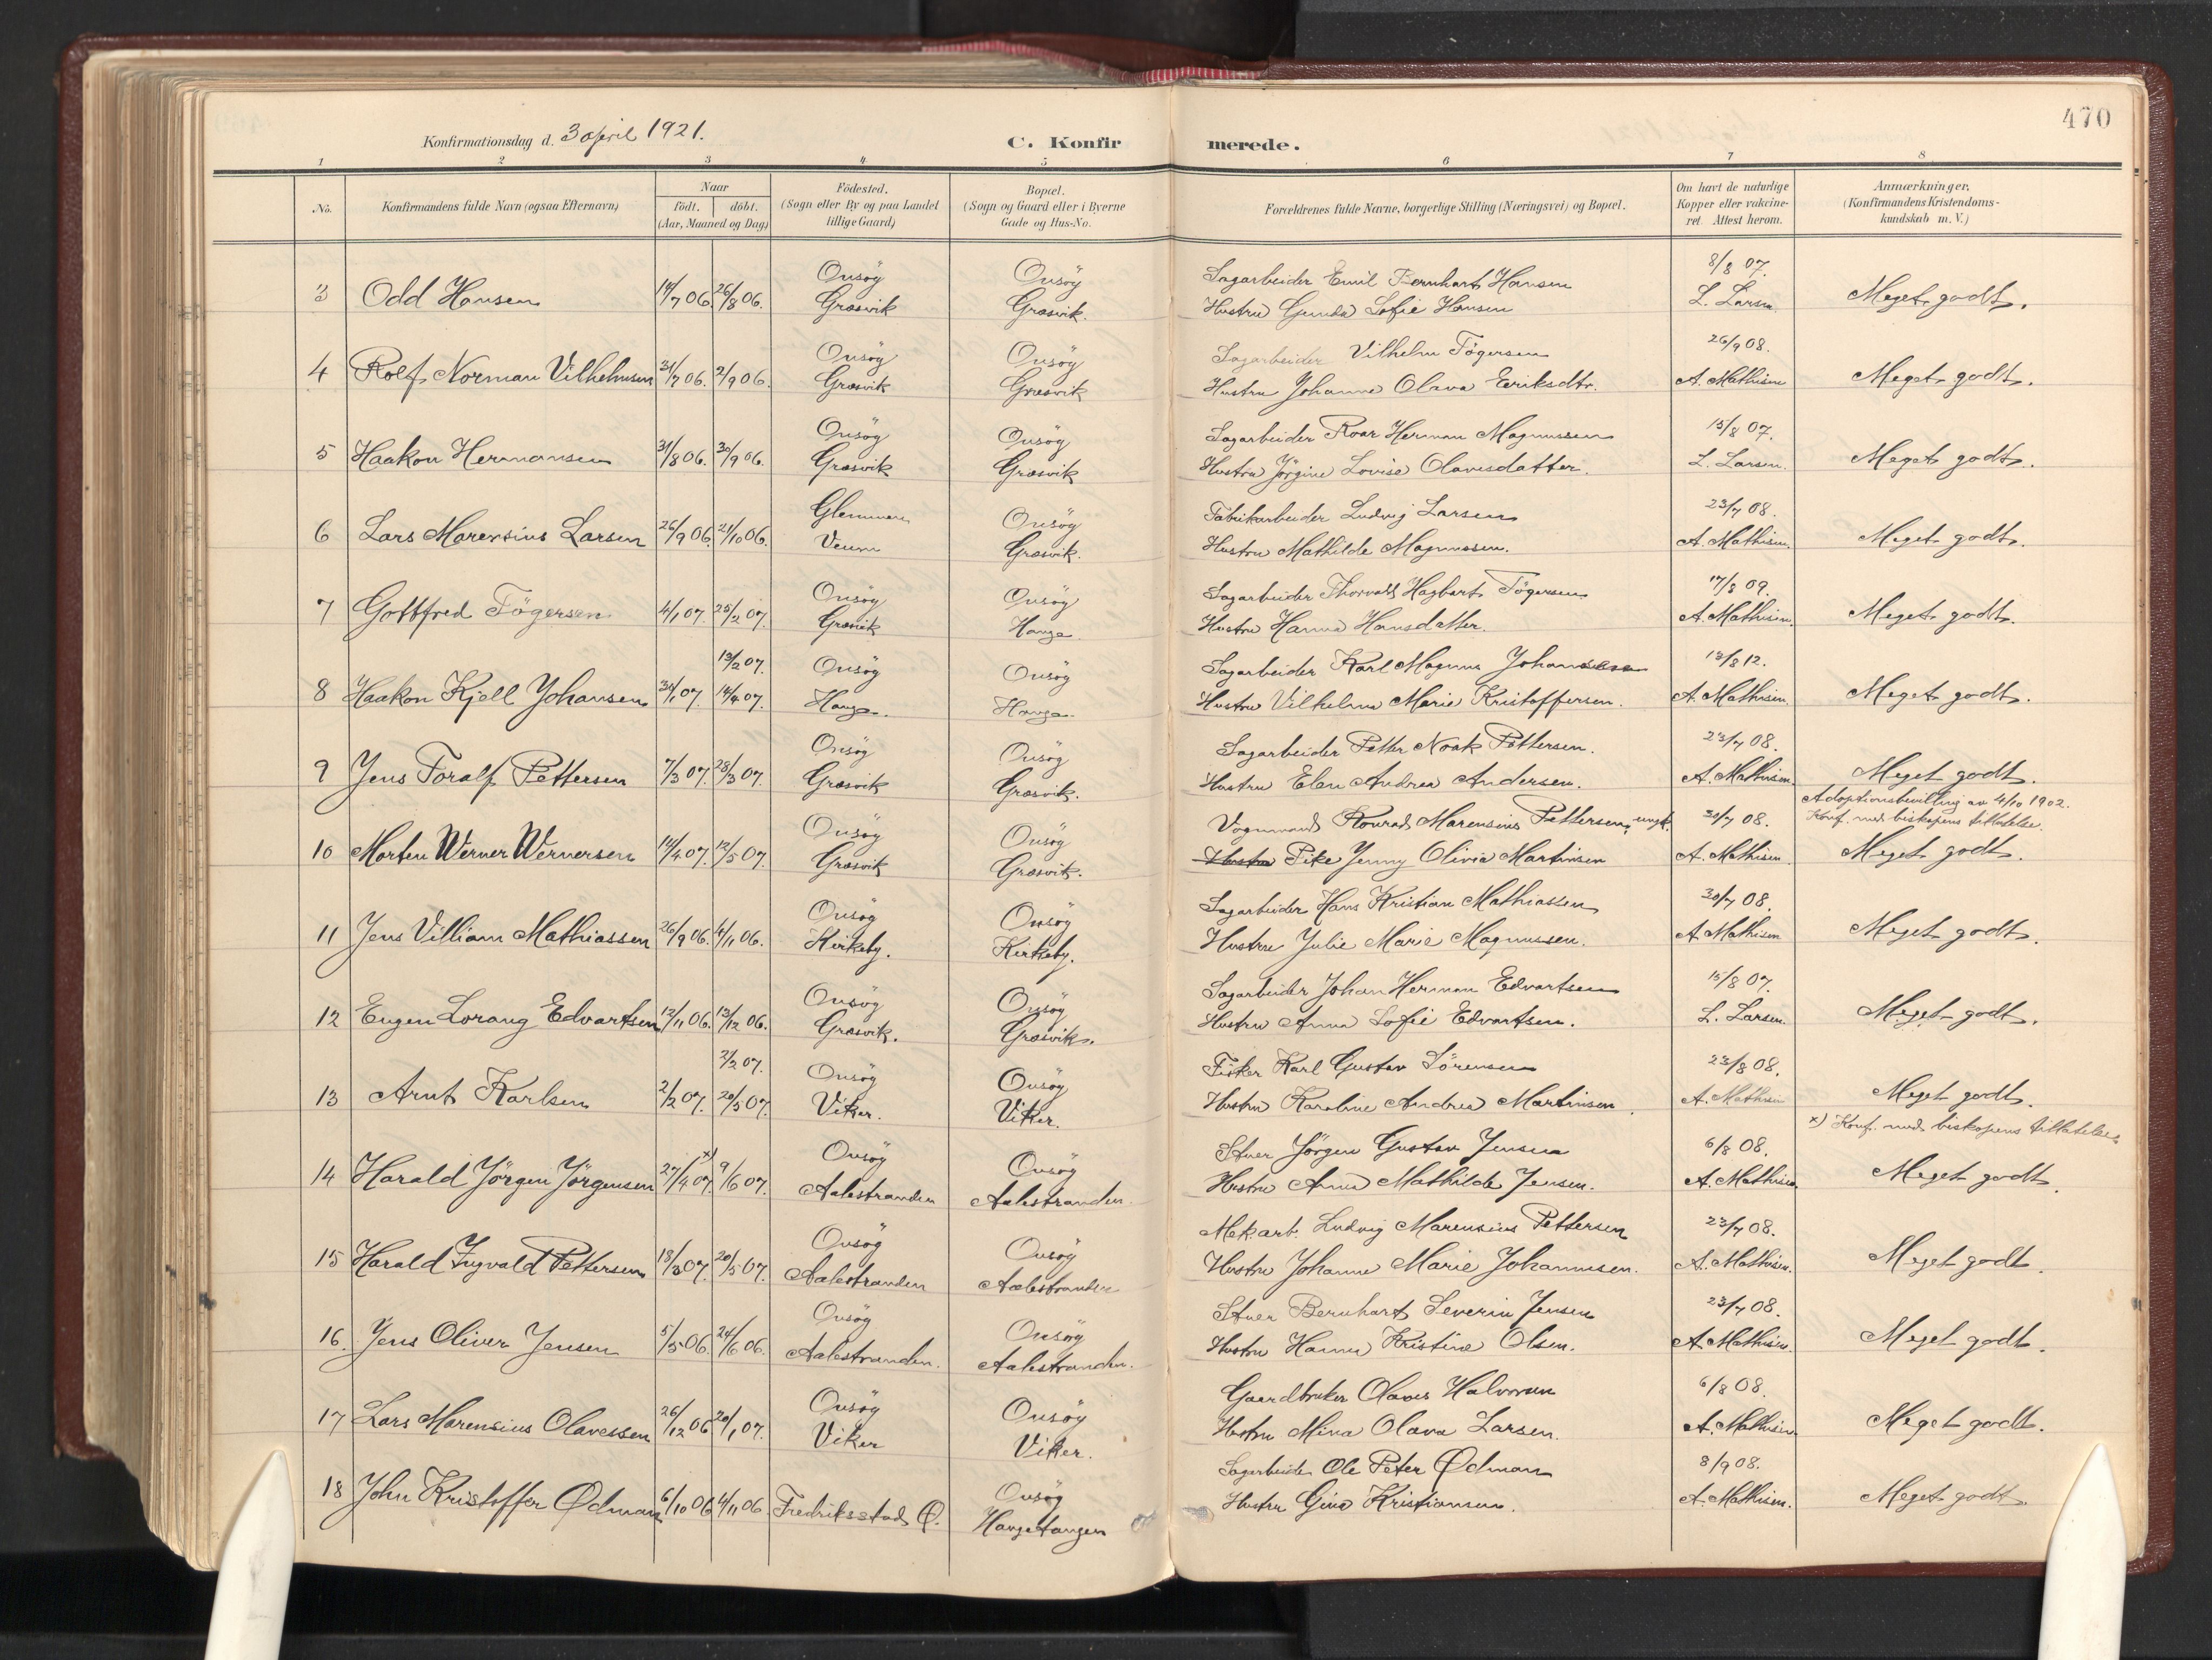 470
Konfirmationsdag d. 3 april 1921.
C. Konfirmerede.
1 2 3 4 5 6 7 8
No.
Konfirmandens fulde Navn (ogsaa Efternavn)
Naar
födt. döbt.
(Aar, Maaned og Dag)
Födested.
(Sogn eller By og paa Landet
tillige Gaard)
Bopæl.
(Sogn og Gaard eller i Byerne
Gade og Hus-No.
Forældrenes fulde Navne, borgerlige Stilling (Næringsvei) og Bopæl.
Om havt de naturlige
Kopper eller vakcine-
ret. Attest herom.
Anmærkninger.
(Konfirmandens Kristendoms-
kundskab m. V.)
Onsöy Onsöy Sagarbeider Emil Bernhart Hansen 8/8 07.
3 Odd Hansen 14/7 06. 26/8 06. Græsvik Græsvik. Hustru Gunda Sofie Hansen L. Larsen Meget godt.
Onsöy Onsöy Sagarbeider Vilhelm Tögersen 26/9 08.
4 Rolf Norman Vilhelmsen 31/7 06. 2/9 06. Græsvik Græsvik Hustru Johanne Olava Eriksdtr. A. Mathisen Meget godt.
Onsöy Onsöy Sagarbeider Roar Herman Magnussen 15/8 07.
5 Haakon Hermansen 31/8 06. 30/9 06. Græsvik Græsvik Hustru Jörgine Lovise Olavesdatter. L. Larsen. Meget godt.
Glemmen Onsöy Fabrikarbeider Ludvig Larsen 23/7 08.
6 Lars Marensius Larsen 26/9 06. 21/10 06. Veum Græsvik. Hustru Mathilde Magnussen. A. Mathisen. Meget godt.
Onsöy Onsöy Sagarbeider Thorvald Hagbart Tögersen 17/8 09.
7 Gottfred Tögersen 4/1 07. 25/2 07. Græsvik Hauge. Hustru Hanna Hansdatter. A. Mathisen. Meget godt.
13/2 07. Onsöy Onsöy Sagarbeider Karl Magnus Johansen 13/8 12.
8 Haakon Kjell Johansen 30/1 07. 14/4 07. Hauge. Hauge. Hustru Vilhelma Marie Kristoffersen. A. Mathisen. Meget godt.
Onsöy Onsöy Sagarbeider Petter Noak Pettersen. 23/7 08.
9 Jens Toralf Pettersen 7/3 07. 28/3 07. Græsvik Græsvik. Hustru Elen Andrea Andersen. A. Mathisen. Meget godt.
Adoptionsbevilling av 4/10 1902.
Onsöy Onsöy Vognmand Konrad Marensius Pettersen, ungk. 30/7 08. Konf. med biskopens tilladelse.
10 Morten Werner Wernersen 14/4 07. 12/5 07. Græsvik Græsvik. Hustru Pike Jenny Olivia Martinsen A. Mathisen. Meget godt.
Onsöy Onsöy Sagarbeider Hans Kristian Mathiassen 30/7 08.
11 Jens Villiam Mathiassen 26/9 06. 4/11 06. Kirkeby. Kirkeby. Hustru Julie Marie Magnussen. A. Mathisen Meget godt.
Onsöy Onsöy Sagarbeider Johan Herman Edvartsen 15/8 07.
12 Eugen Lorang Edvartsen 12/11 06. 13/12 06. Græsvik. Græsvik. Hustru Anna Sofie Edvartsen. L. Larsen. Meget godt.
2/2 07. Onsöy Onsöy Fisker Karl Gustav Sörensen 23/8 08.
13 Arnt Karlsen 2/2 07. 20/5 07. Viker. Viker. Hustru Karoline Andrea Martinsen. A. Mathisen Meget godt.
x) Konf. med biskopens tilladelse
Onsöy Onsöy Stuer Jörgen Gustav Jensen 6/8 08.
14 Harald Jörgen Jörgensen 27/4 07. x) 9/6 07. Aalestranden Aalestranden. Hustru Anna Mathilde Jensen. A. Mathisen. Meget godt.
Onsöy Onsöy Mek arb. Ludvig Marensius Pettersen 23/7 08.
15 Harald Ingvald Pettersen 18/3 07. 20/5 07. Aalestranden Aalestranden Hustru Johanne Marie Johannesen. A. Mathisen. Meget godt.
Onsöy Onsöy Stuer Bernhart Severin Jensen 23/7 08.
16. Jens Oliver Jensen 5/5 06. 24/6 06. Aalestranden. Aalestranden. Hustru Hanna Kristine Olsen. A. Mathisen. Meget godt.
Onsöy Onsöy Gaardbruker Olaves Halvorsen 6/8 08.
17 Lars Marensius Olavessen 26/12 06 20/1 07. Viker Viker. Hustru Mina Olava Larsen. A. Mathisen. Meget godt.
Onsöy Sagarbeider Ole Peter Ødman 8/9 08.
18 John Kristoffer Ødman 6/10 06 4/11 06. Fredriksstad Ø. Haugetangen Hustru Gina Kristiansen. A. Mathisen. Meget godt.